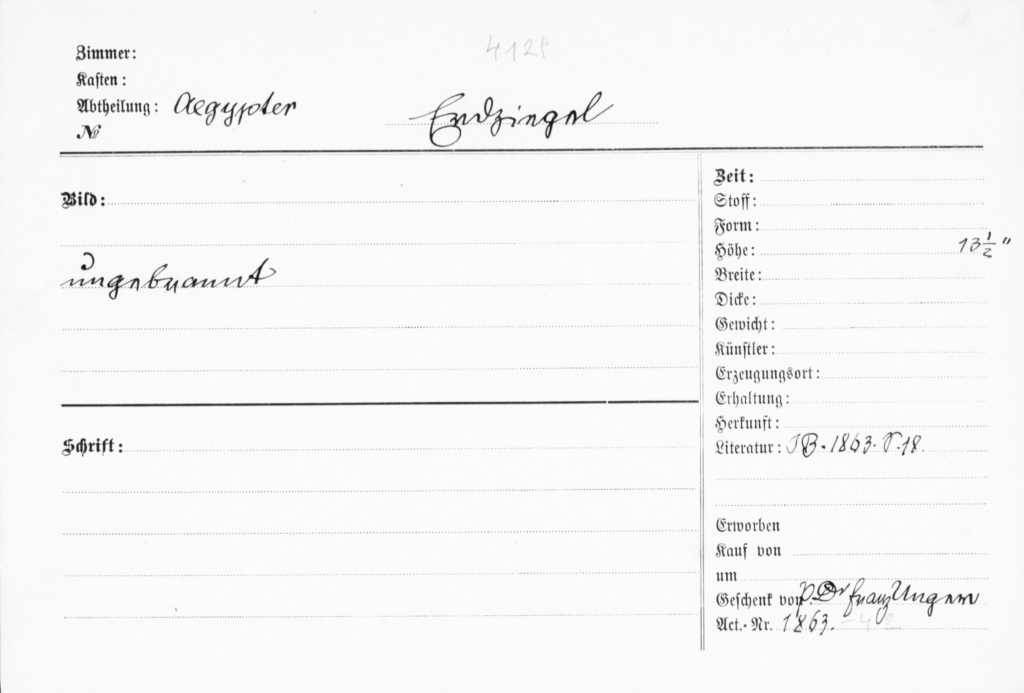 4129
Zimmer:
Kasten:
Abtheilung: Aegypter
Erdziegel
№
Bild:
ungebrannt
Schrift:
Zeit:
Stoff:
Form:
Höhe: 13½"
Breite:
Dicke:
Gewicht:
Künstler:
Erzeugungsort:
Erhaltung:
Herkunft:
Literatur: JB. 1863. S. 18.
Erworben
Kauf von
um
Geschenk von Dr Franz Unger
Act.-Nr. 1863. -42